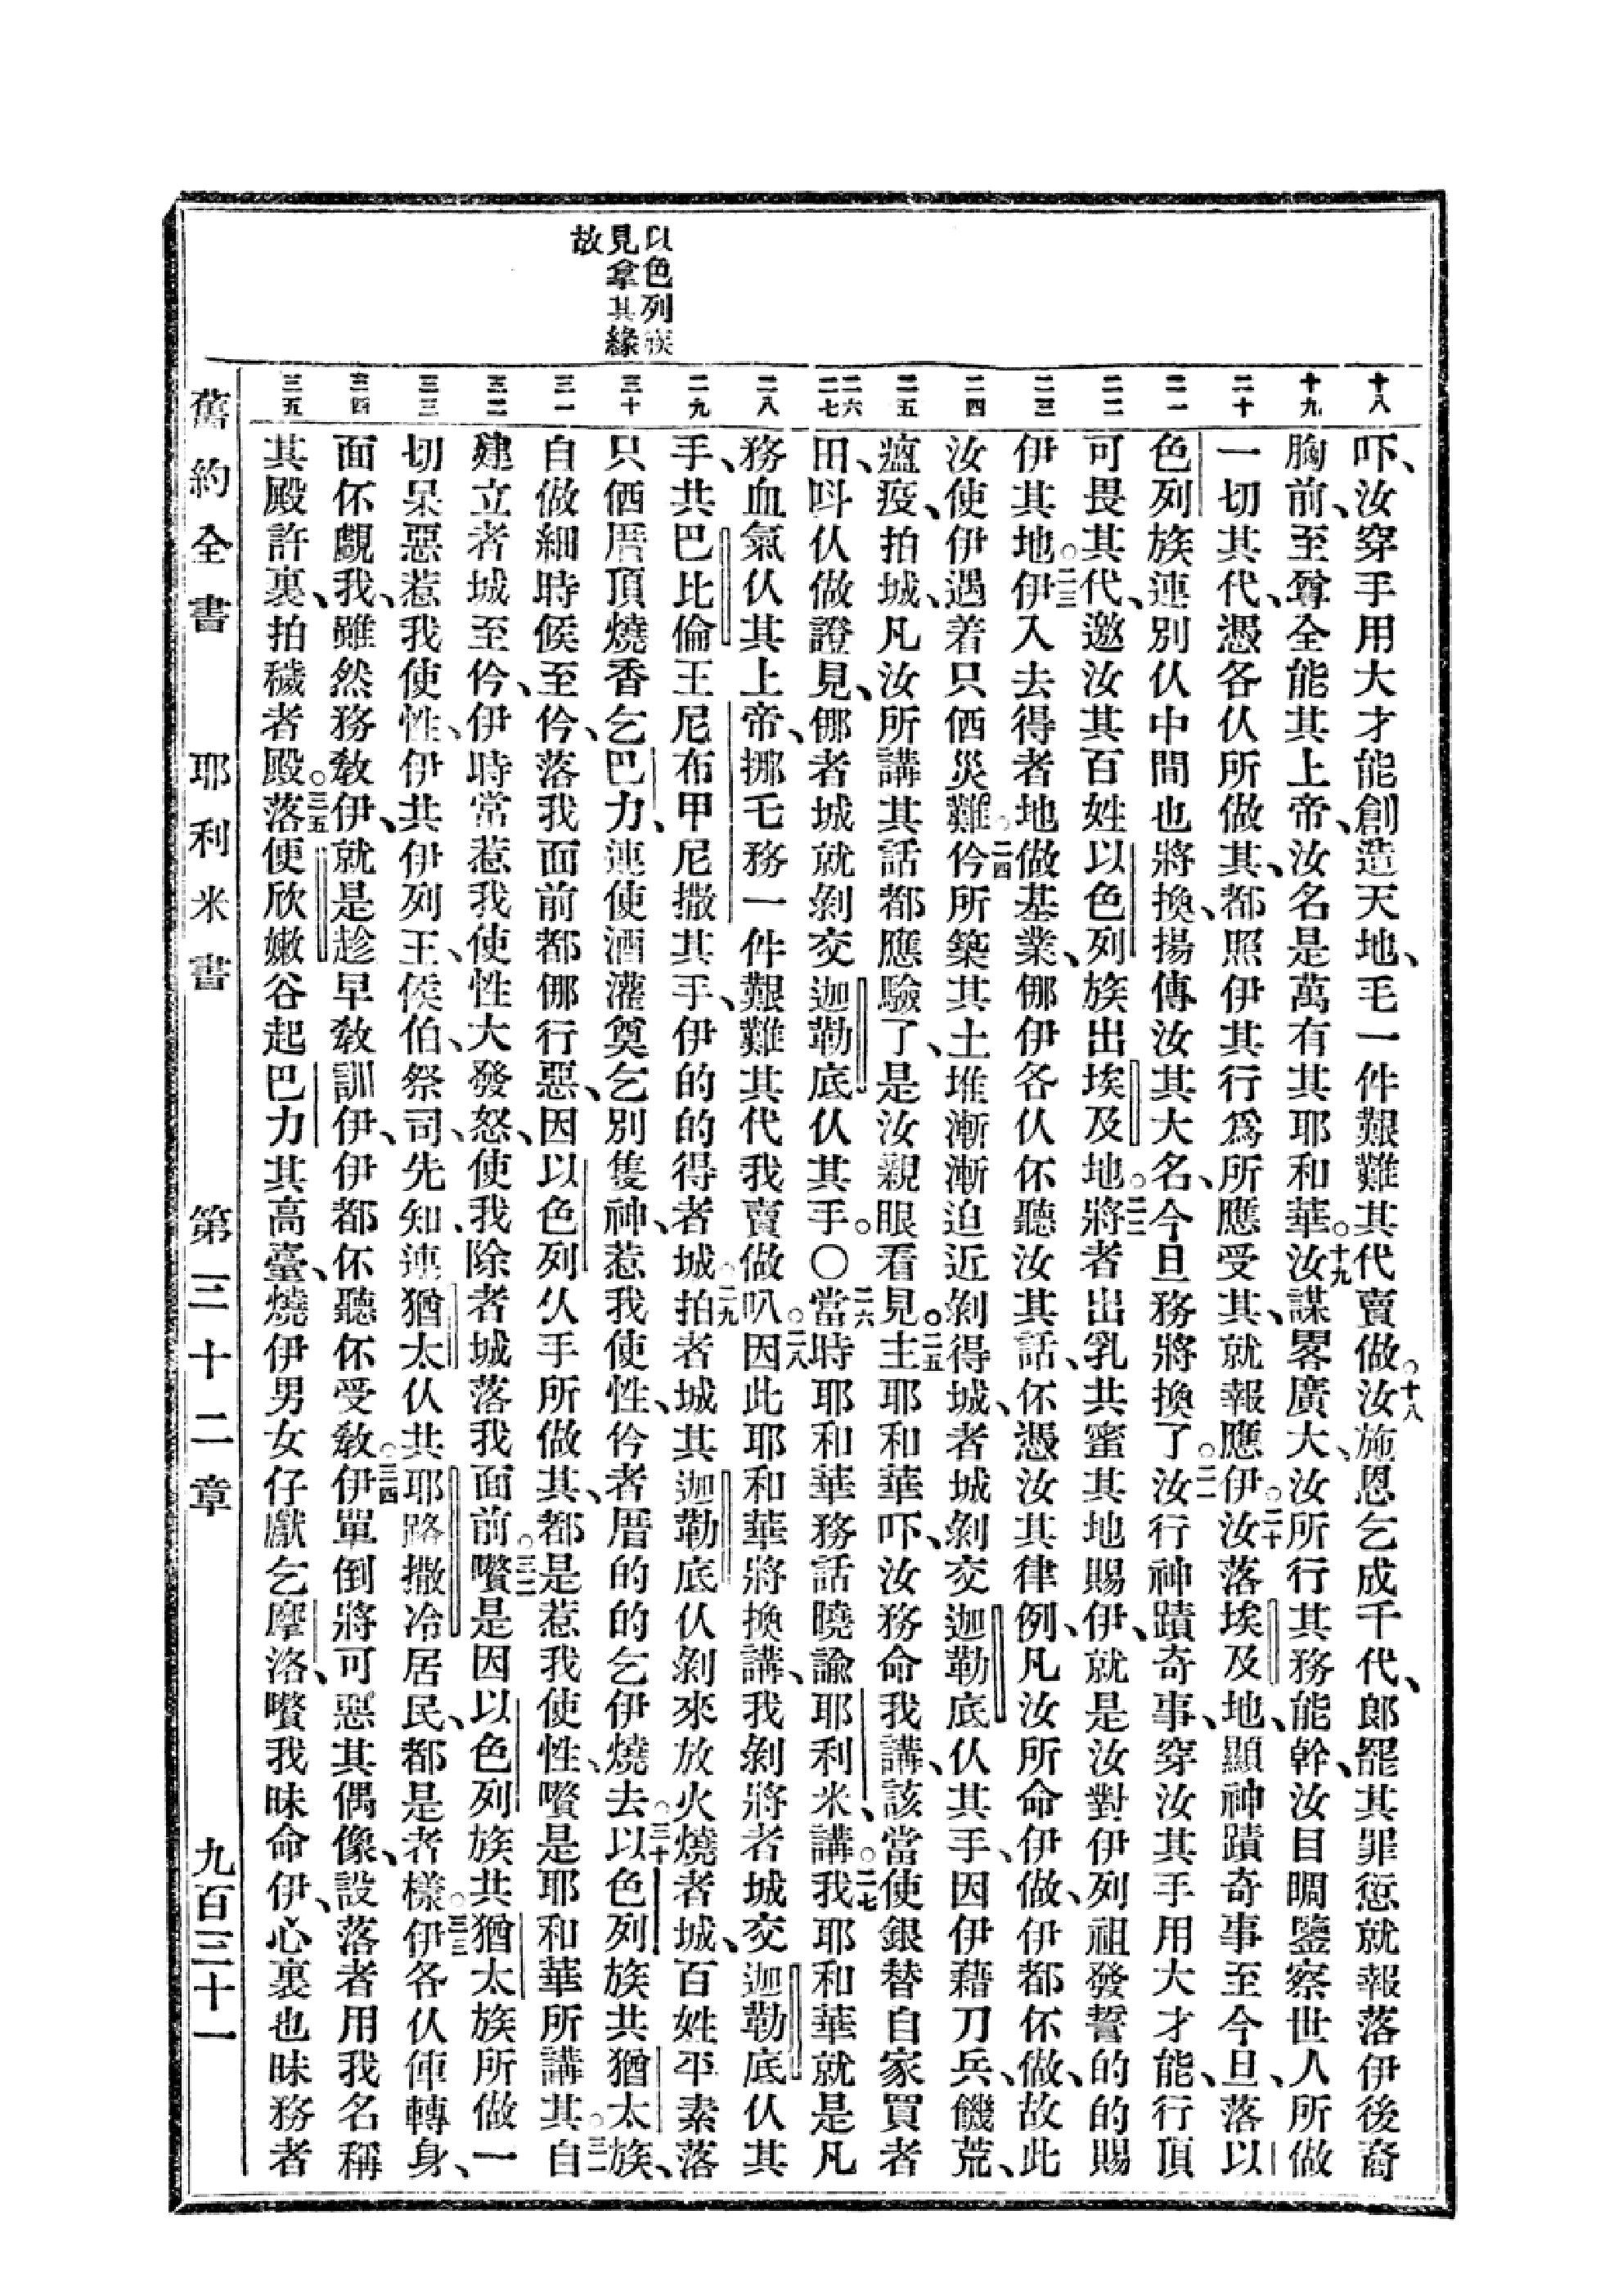 以色列族
見拿其緣
故
十八
十九
二十
二一
二二
二三
二四
二五
二六
二七
二八
二九
三十
三一
三二
三三
三四
三五
吓、汝穿手用大才能創造天地、毛一件艱難其代賣做。十八汝施恩乞成千代、郎罷其罪愆就報落伊後裔
胸前、至尊全能其上帝、汝名是萬有其耶和華。十九汝謀畧廣大、汝所行其務能幹、汝目睭鑒察世人所做
一切其代、憑各仈所做其、都照伊其行爲、所應受其、就報應伊。二十汝落埃及地、顯神蹟奇事至今旦、落以
色列族連別仈中間也將換、揚傳汝其大名、今旦務將換了。二一汝行神蹟奇事、穿汝其手用大才能、行頂
可畏其代、邀汝其百姓以色列族出埃及地。二二將者出乳共蜜其地賜伊、就是汝對伊列祖發誓的的賜
伊其地。二三伊入去得者地做基業、儕伊各仈伓聽汝其話、伓憑汝其律例、凡汝所命伊做、伊都伓做、故此
汝使伊遇着只仾災難。二四仱所築其土堆漸漸迫近剝得城、者城剝交迦勒底仈其手、因伊藉刀兵、饑荒、
瘟疫、拍城、凡汝所講其話都應驗了、是汝親眼看見。二五主耶和華吓、汝務命我講、該當使銀替自家買者
田、呌仈做證見、儕者城就剝交迦勒底仈其手。〇二六當時耶和華務話曉諭耶利米、講。二七我耶和華就是凡
務血氣仈其上帝、挪毛務一件艱難其代我賣做叭。二八因此耶和華將換講、我剝將者城交迦勒底仈其
手、共巴比倫王尼布甲尼撒其手、伊的的得者城。二九拍者城其迦勒底仈剝來放火燒者城、百姓平素落
只仾厝頂燒香乞巴力、連使酒灌奠乞別隻神、惹我使性、仱者厝的的乞伊燒去。三十以色列族共猶太族、
自做細時候至仱、落我面前都儕行惡、因以色列仈手所做其、都是惹我使性、嚽是耶和華所講其。三一自
建立者城至仱、伊時常惹我使性大發怒、使我除者城落我面前。三二嚽是因以色列族共猶太族所做一
切呆惡惹我使性、伊共伊列王、侯伯、祭司、先知、連猶太仈共耶路撒冷居民、都是者樣。三三伊各仈俥轉身、
面伓覷我、雖然務教伊、就是趁早教訓伊、伊都伓聽伓受教。三四伊單倒將可惡其偶像、設落者用我名稱
其殿許裏、拍穢者殿。三五落便欣嫩谷起巴力其高臺、燒伊男女仔獻乞摩洛、嚽我昧命伊、心裏也昧務者
舊約全書　耶利米書　第三十二章　九百三十一